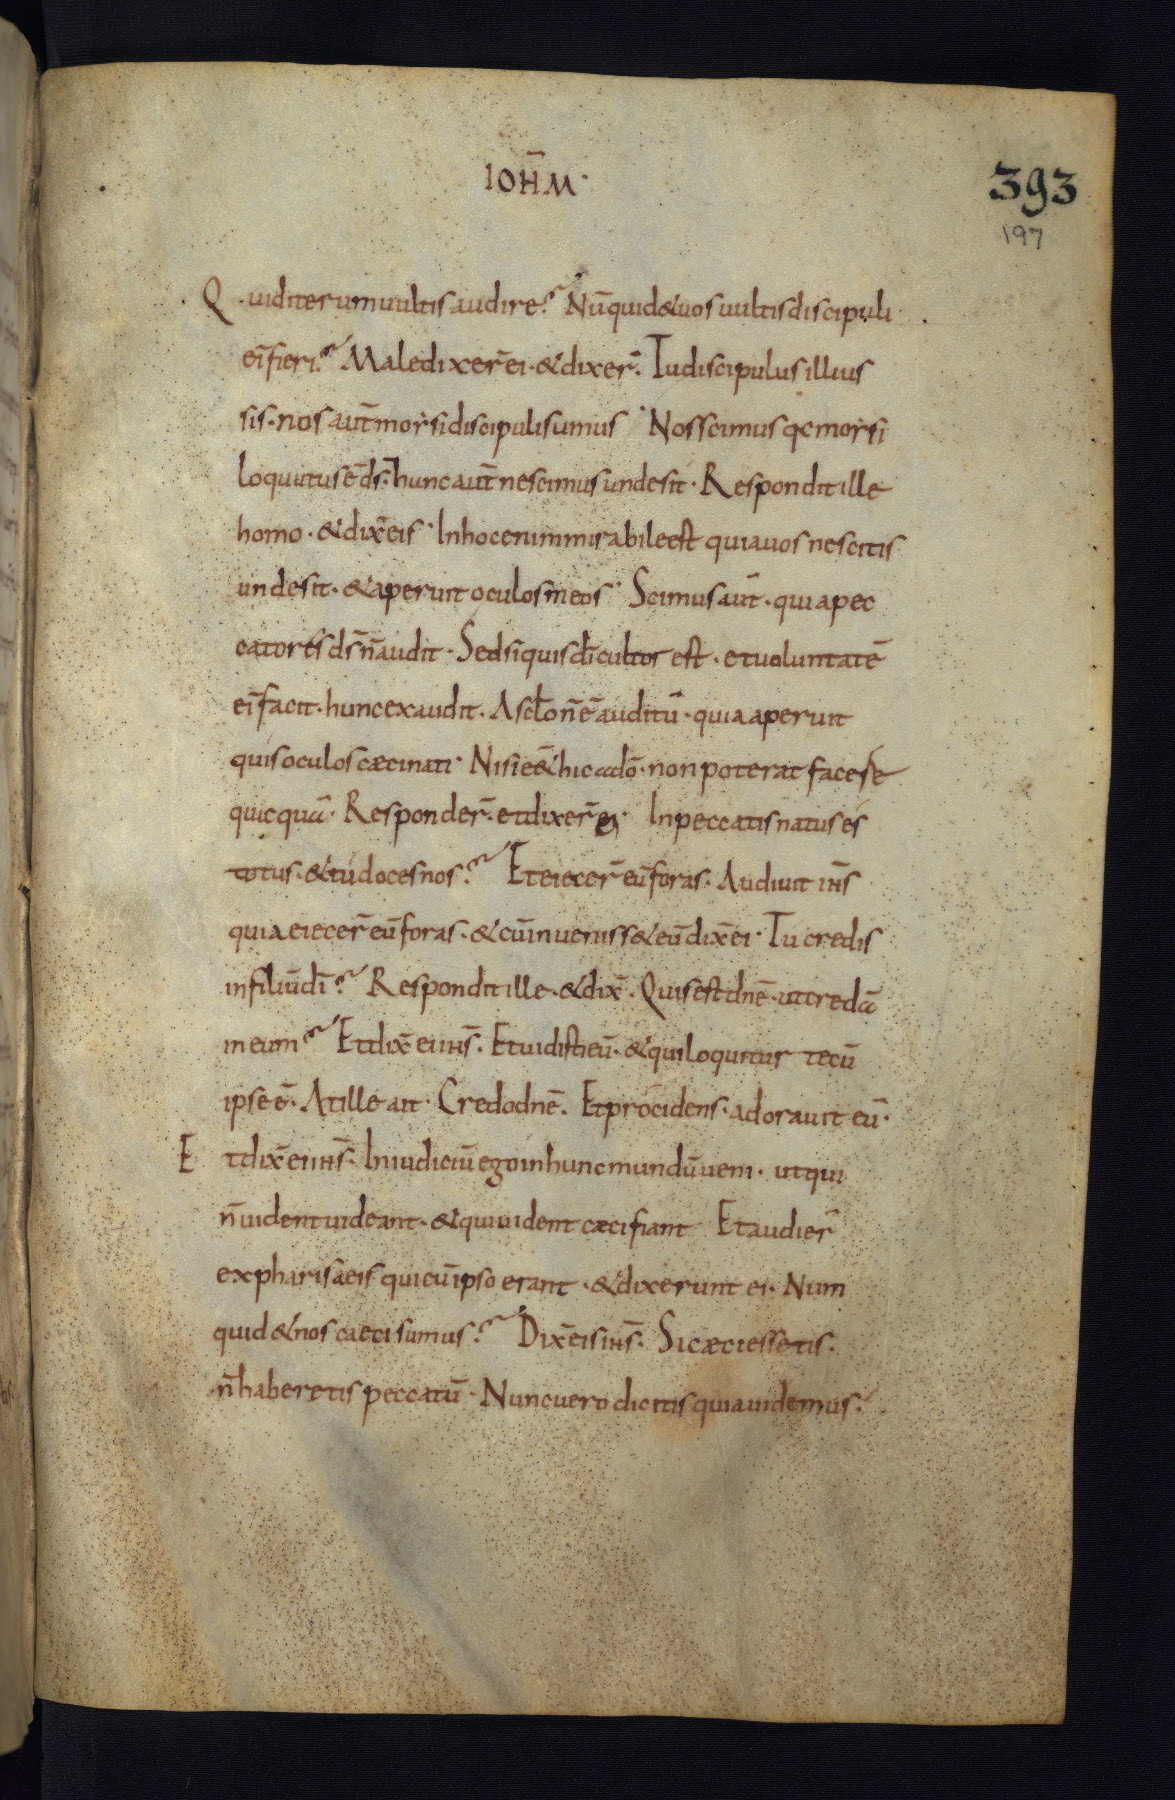 IOH̄M·
393
197
Q uid iterum uultis audire? Nūquid & uos uultis discipuli
ei᷒ fieri? Maledixer̄ ei· & dixer̄. Tu discipulus illius
sis· nos aut̄ moẏsi discipuli sumus· Nos scimus qꝛ moẏsi
loquutus ē d̄s· hunc aut̄ nescimus unde sit· Respondit ille
homo· & dix̄ eis· In hoc enim mirabile est quia uos nescitis
unde sit· & aperuit oculos meos· Scimus aut̄· quia pec
catores d̄s n̄ audit· Sed si quis d̄i cultor est· et uoluntatē
ei᷒ facit· hunc exaudit· A sc̄lo n̄ ē auditū· quia aperuit
quis oculos cæci nati· Nisi ēēt hic a dō· non poterat facere
quicquā· Responder̄· et dixer̄ ei· In peccatis natus es
totus· & tu doces nos? Et eiecer̄ eū foras· Audiuit ih̄s
quia eiecer̄ eū foras· & cū inueniss& eū dix̄ ei· Tu credis
in filiū d̄i? Respondit ille· & dix̄· Quis est dn̄e· ut credā
in eum? Et dix̄ ei ih̄s· Et uidisti eū· & qui loquitur tecū
ipse ē· At ille ait· Credo dn̄e. Et procidens· adorauit eū·
E t dix̄ ei ih̄s· In iudiciū ego in hunc mundū ueni· ut qui
n̄ uident uideant· & qui uident cæci fiant Et audier̄
ex pharisæis qui cū ipso erant· & dixerunt ei· Num
quid & nos caeci sumus? Dix̄ eis ih̄s· Si cæci essetis·
n̄ haberetis peccatū· Nunc uero dicitis quia uidemus·